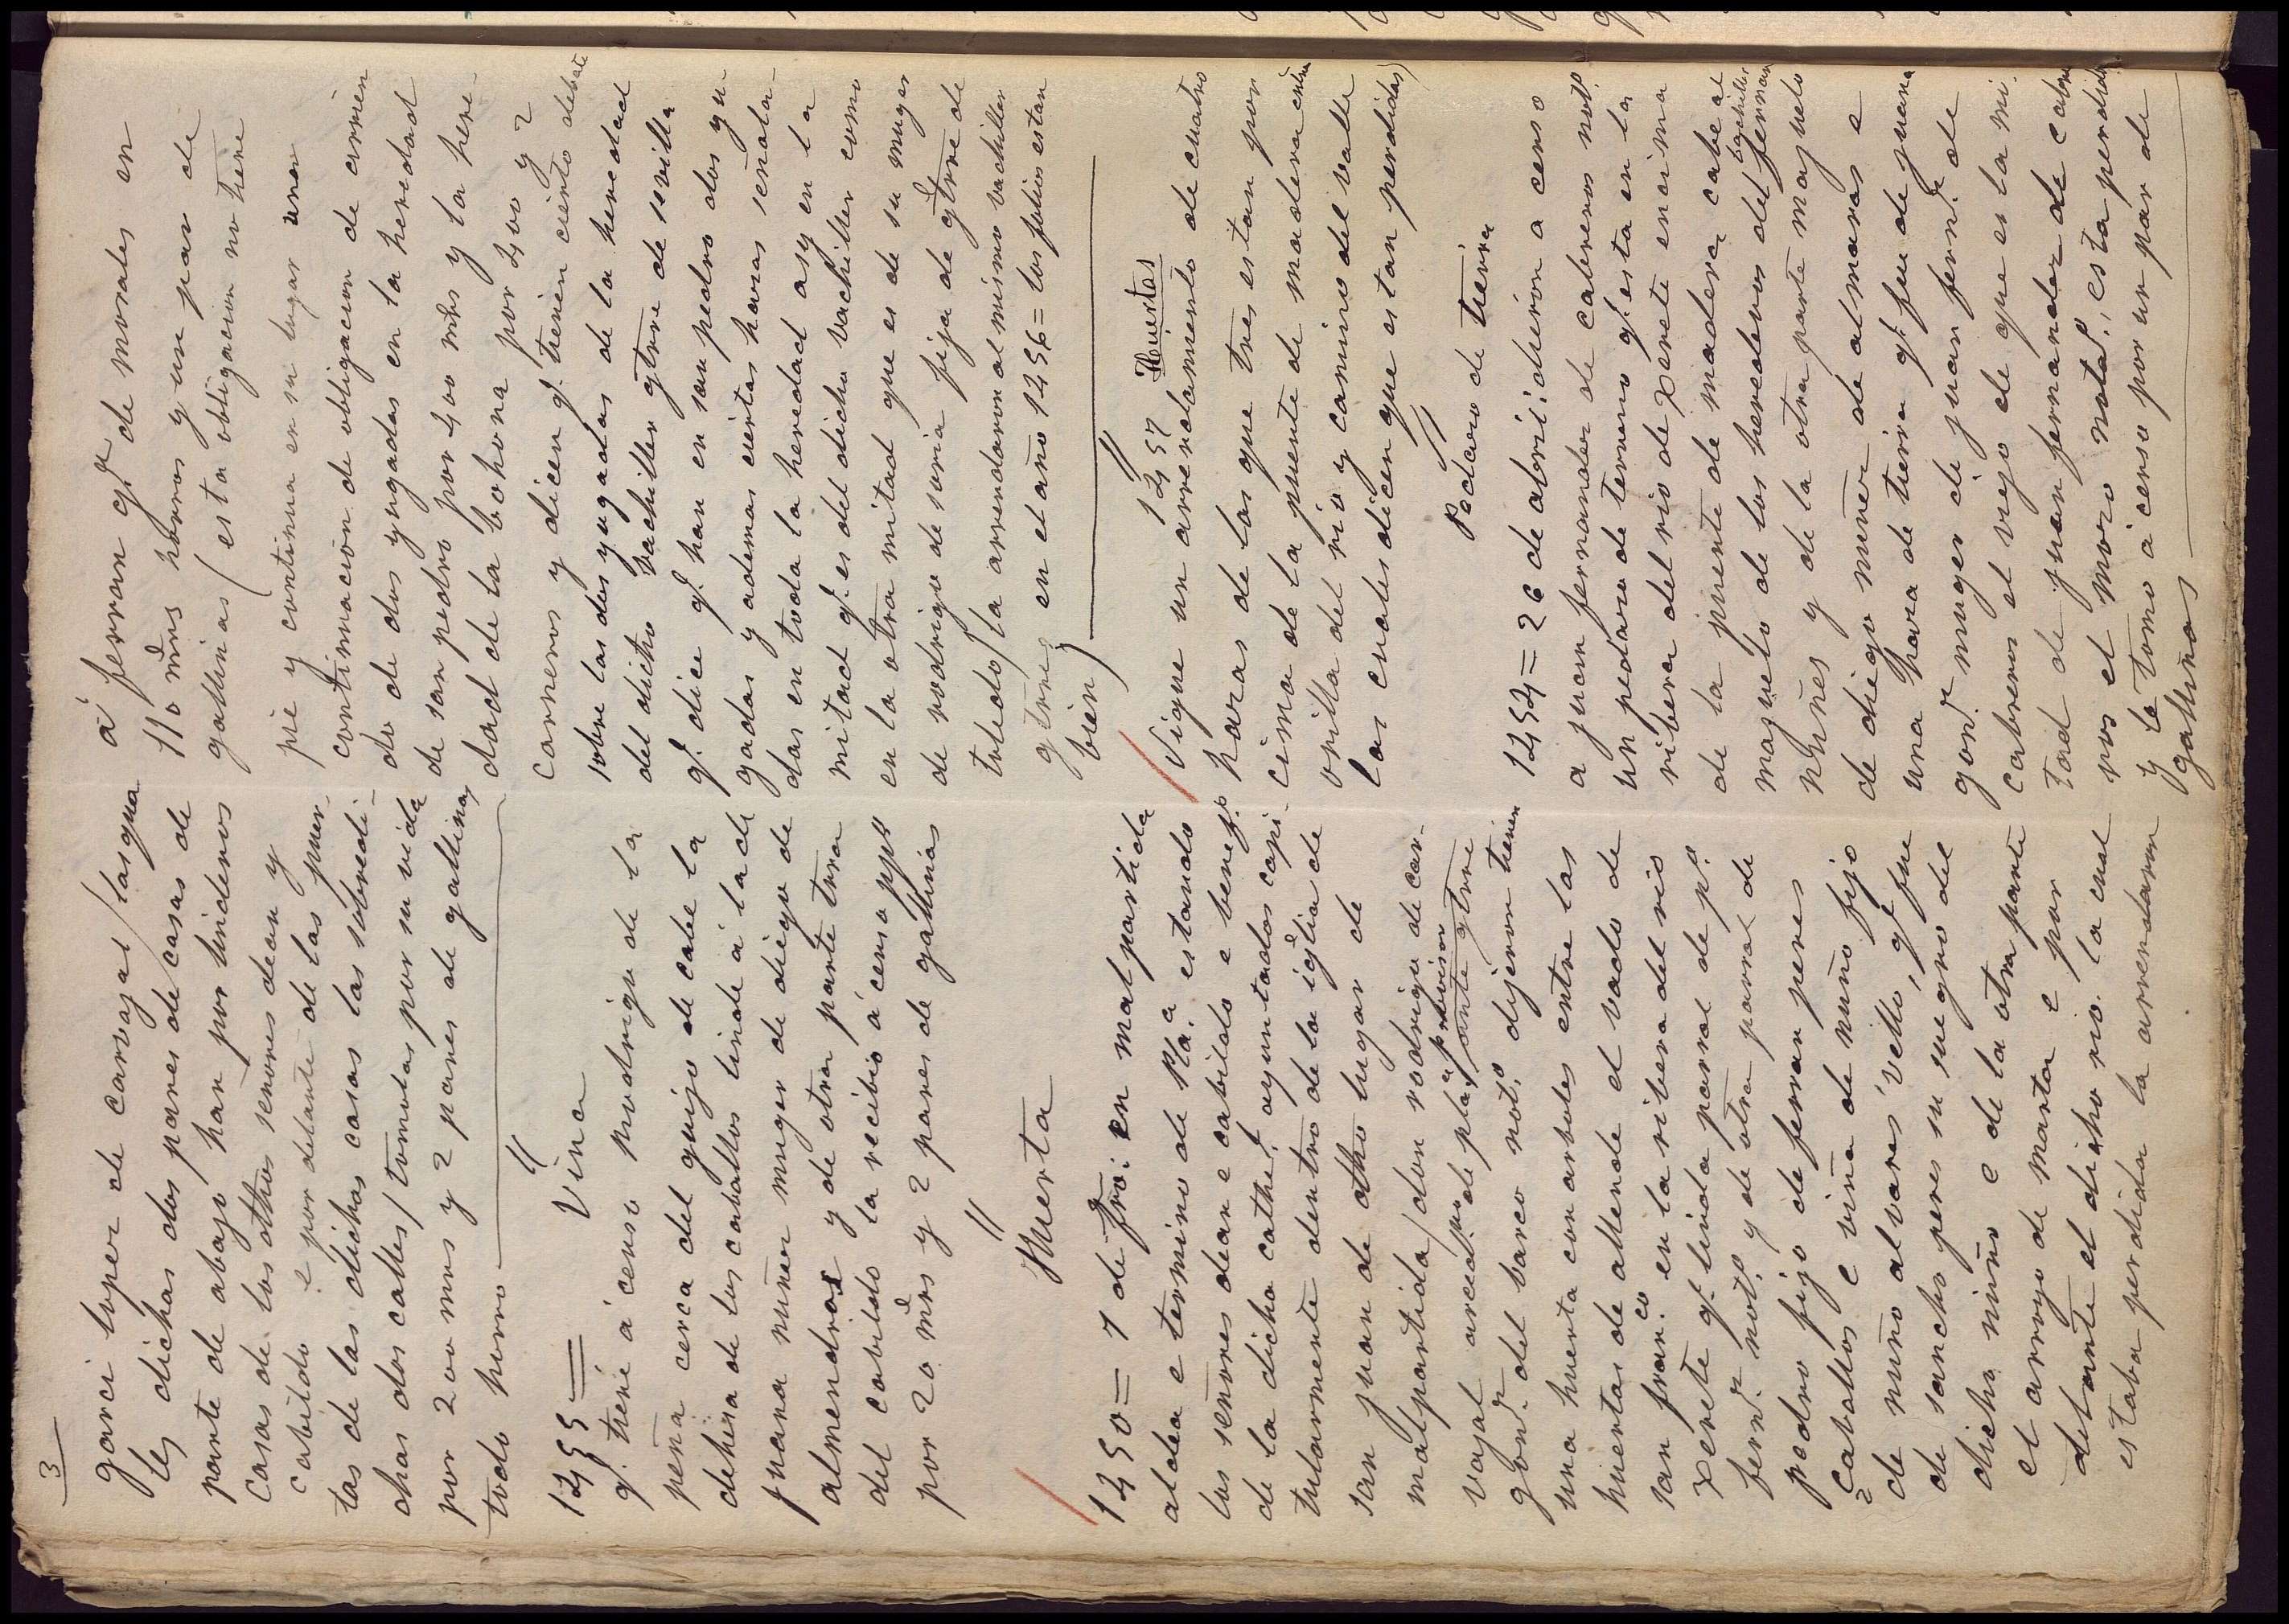 3
garci loper de carvajal / las qua
les dichas dos pares de casas de
parte de abajo han por linderos
casas de los dthos señores dean y
cabildo e por delante de las puer-
tas de las dichas casas las sobredi-
chas dos calles / tomolas por su vida
por 200 mrs y 2 pares de gallinas
todo horro
1455 = Vina
q.e tiene á censo rrodrigo de la
peña cerca del guijo de cabe la
dehesa de los caballos linde á la de
juana nuñes muger de diego de
almendras y de otra parte tierra
del cabildo la recibio á censo ppº
por 20 mrs y 2 pares de gallinas
Huerta
1450 = 7 de fro: en malpartida
aldea e termino de Pla.ª estando
los señores dean e cabildo e benef.º
de la dicha cathe.l ayuntados capi-
tularmente dentro de la iglia de
san juan de dtho lugar de
malpartida / don rodrigo de car-
vajal arced.no de pla.ª provisor ante gtrre
gond.s del barco not.º dijeron tienen
una huerta con arboles entre las
huertas de allende el vado de
san fran.co en la ribera del rio
xerete q.e linda parral de p.º
fernd.s not.º y de otra parral de
pedro fijo de ferran peres
caballos e viña de nuño fijo
2
de nuño alvares vello, q.e fue
de sancho peres su suegro del
dicho nuño e de la otra parte
el arroyo de marta e por
delante el dicho rio. la cual
estaba perdida la arrendaron
á ferran g.s de morales en
110 mrs horros y un par de
gallinas (esta obligacion no tiene
pie y continua en su lugar una
continuacion de obligacion de arrien
do de dos yugadas en la heredad
de san pedro por 400 mrs y la here-
dad de la bohona por 400 y 2
carneros y dicen q.e tienen ciento debate
sobre las dos yugadas de la heredad
del dicho bachiller gtrre de sevilla
q.e dice q.e han en san pedro dos yu-
gadas y ademas ciertas hazas señala-
das en toda la heredad asy en la
mitad q.e es del dicho bachiller como
en la otra mitad que es de su muger
de rodrigo de soria fija de gtrre de
toledo / la arrendaron al mismo bachiller
gtrres en el año 1456 = los folios estan
bien)
1457 Huertas
Sigue un arrendamiento de cuatro
hazas de las que tres estan por
cima de la puente de madera entre
orilla del rio y camino del valle
las cuales dicen que estan perdidas)
Pedazo de tierra
1454 = 26 de abril: dieron a censo
a juan fernandes de cabreros not.º
un pedazo de terreno q.e esta en la
ribera del rio de xerete encima
de la puente de madera cabe al
majuelo de los herederos del bachiller fernan
nuñes y de la otra parte majuelo
de diego nuñes de almaras e
una haza de tierra q.e fue de juana
gond.s muger de juan fernd.s de
cabreros el viejo de que es la mi-
tad de juan fernandez de cabre
ros el mozo notº, esta perdida
y la tomo á censo por un par de
gallinas